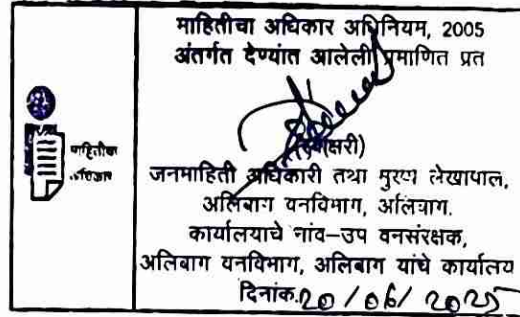 माहितीचा अधिकार अधिनियम, 2005
अंतर्गत देण्यांत आलेली प्रमाणित प्रत
माहितीचा
अधिकार
(स्वाक्षरी)
जनमाहिती अधिकारी तथा मुख्य लेखापाल,
अलिबाग वनविभाग, अलिबाग.
कार्यालयाचे नांव-उप वनसंरक्षक,
अलिबाग वनविभाग, अलिबाग यांचे कार्यालय
दिनांक.२०/०६/२०२५